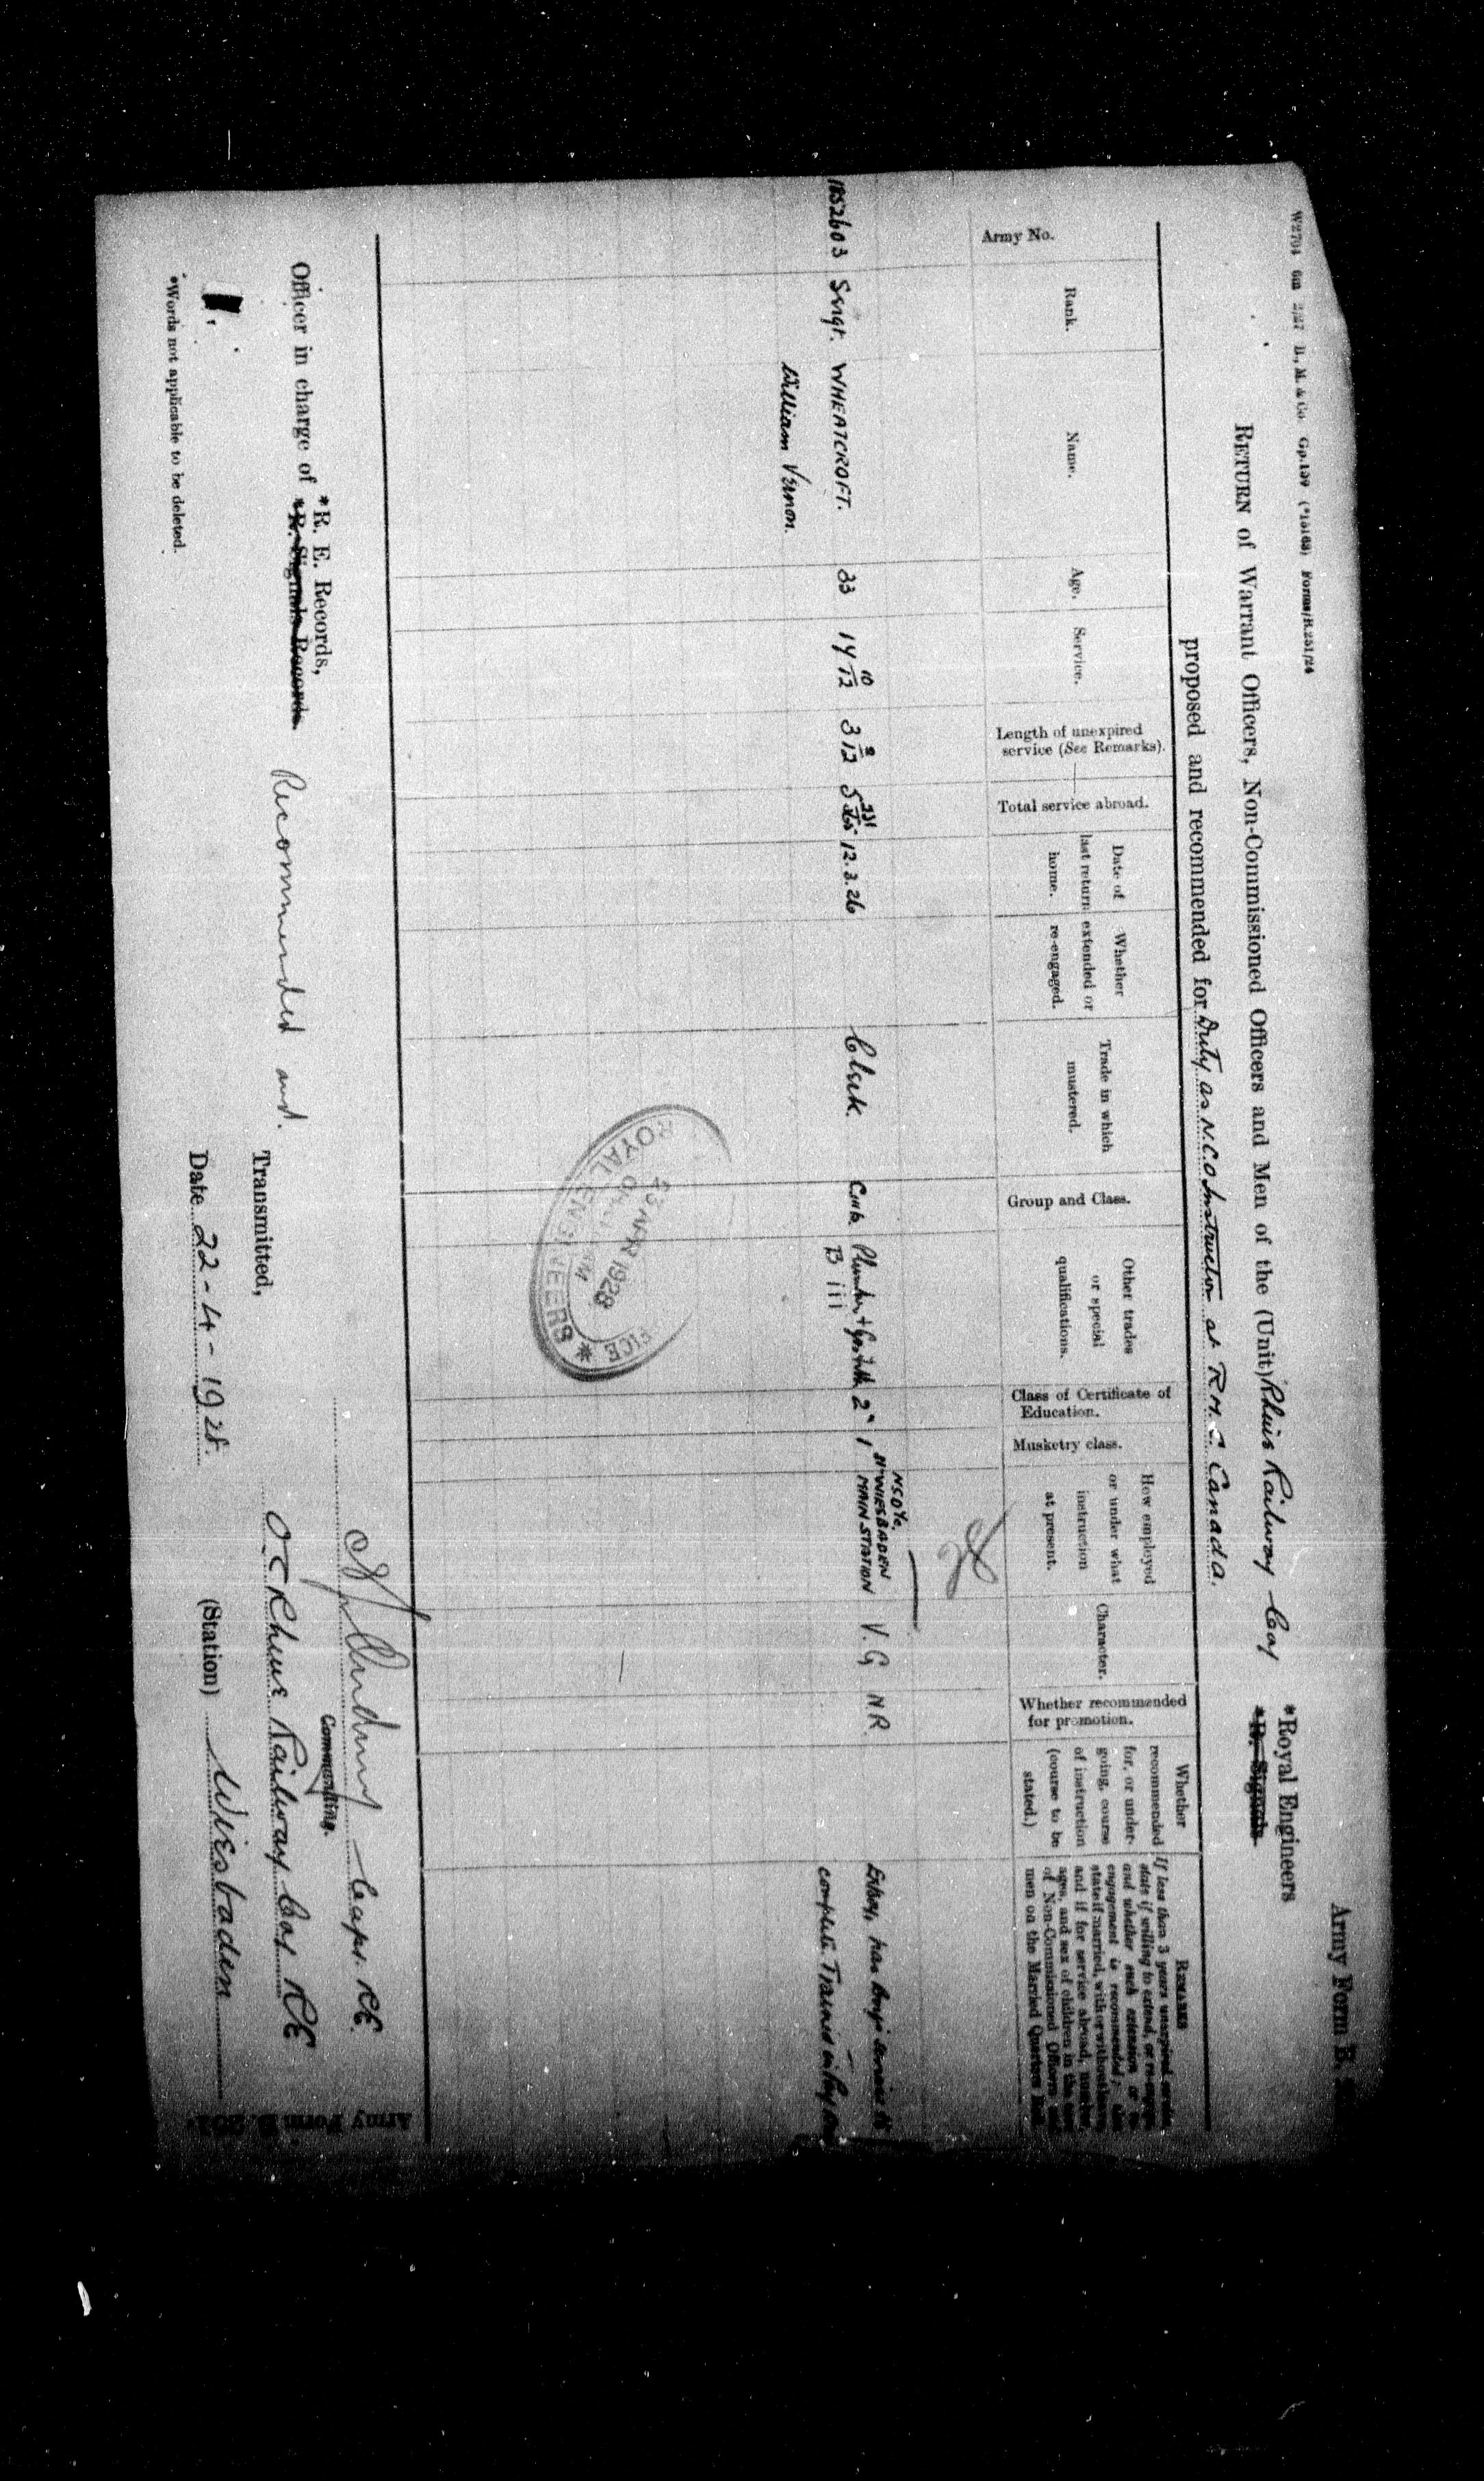 W2704 6m 2/27 D., M. & Co. Gp.139 Forms/B.251/24
Army Form B.
RETURN of Warrant Officers, Non-Commissioned Officers and Men of the (Unit) Rhine Railway Coy *Royal Engineers
*R. Signals
proposed and recommended for Duty as N.C.O Instructor at R.M.C. Canada.
Army No.
Rank.
Name.
Age.
Service.
Length of unexpired
service (See Remarks).
Total service abroad.
Date of
last return
home.
Whether
extended or
re-engaged.
Trade in which
mustered.
Group and Class.
Other trades
or special
qualifications.
Class of Certificate of
Education.
Musketry class.
How employed
or under what
instruction
at present.
Character.
Whether recommended
for promotion.
Whether
recommended
for, or under-
going, course
of instruction
(course to be
stated.)
REMARKS
If less than 3 years unexpired service
state if willing to extend, or re-engage
and whether such extension or re-
engagement is recommended; also
state if married, with or without leave
and if for service abroad, number
ages, and sex of children in the case
of Non-Commissioned Officers and
men on the Married Quarters Roll.
28
1852603 Sergt. WHEATCROFT. 33 14 10/12 3 9/12 5 231/365 12.3.26 Clerk. 2nd 1 V.G N.R.
William Vernon.
B iii
WIESBADEN
MAIN STATION
has Boys service to
complete. Trained
ROYAL ENGINEERS
23 APR 1928
OFFICE
Capt. RE.
Commanding.
*R. E. Records,
Officer in charge of *R. Signals Records.
Recommended and.
Transmitted,
O.C Rhine Railway Coy RE
Date 22-4-1928.
(Station) Wiesbaden
*Words not applicable to be deleted.
Army Form B. 251